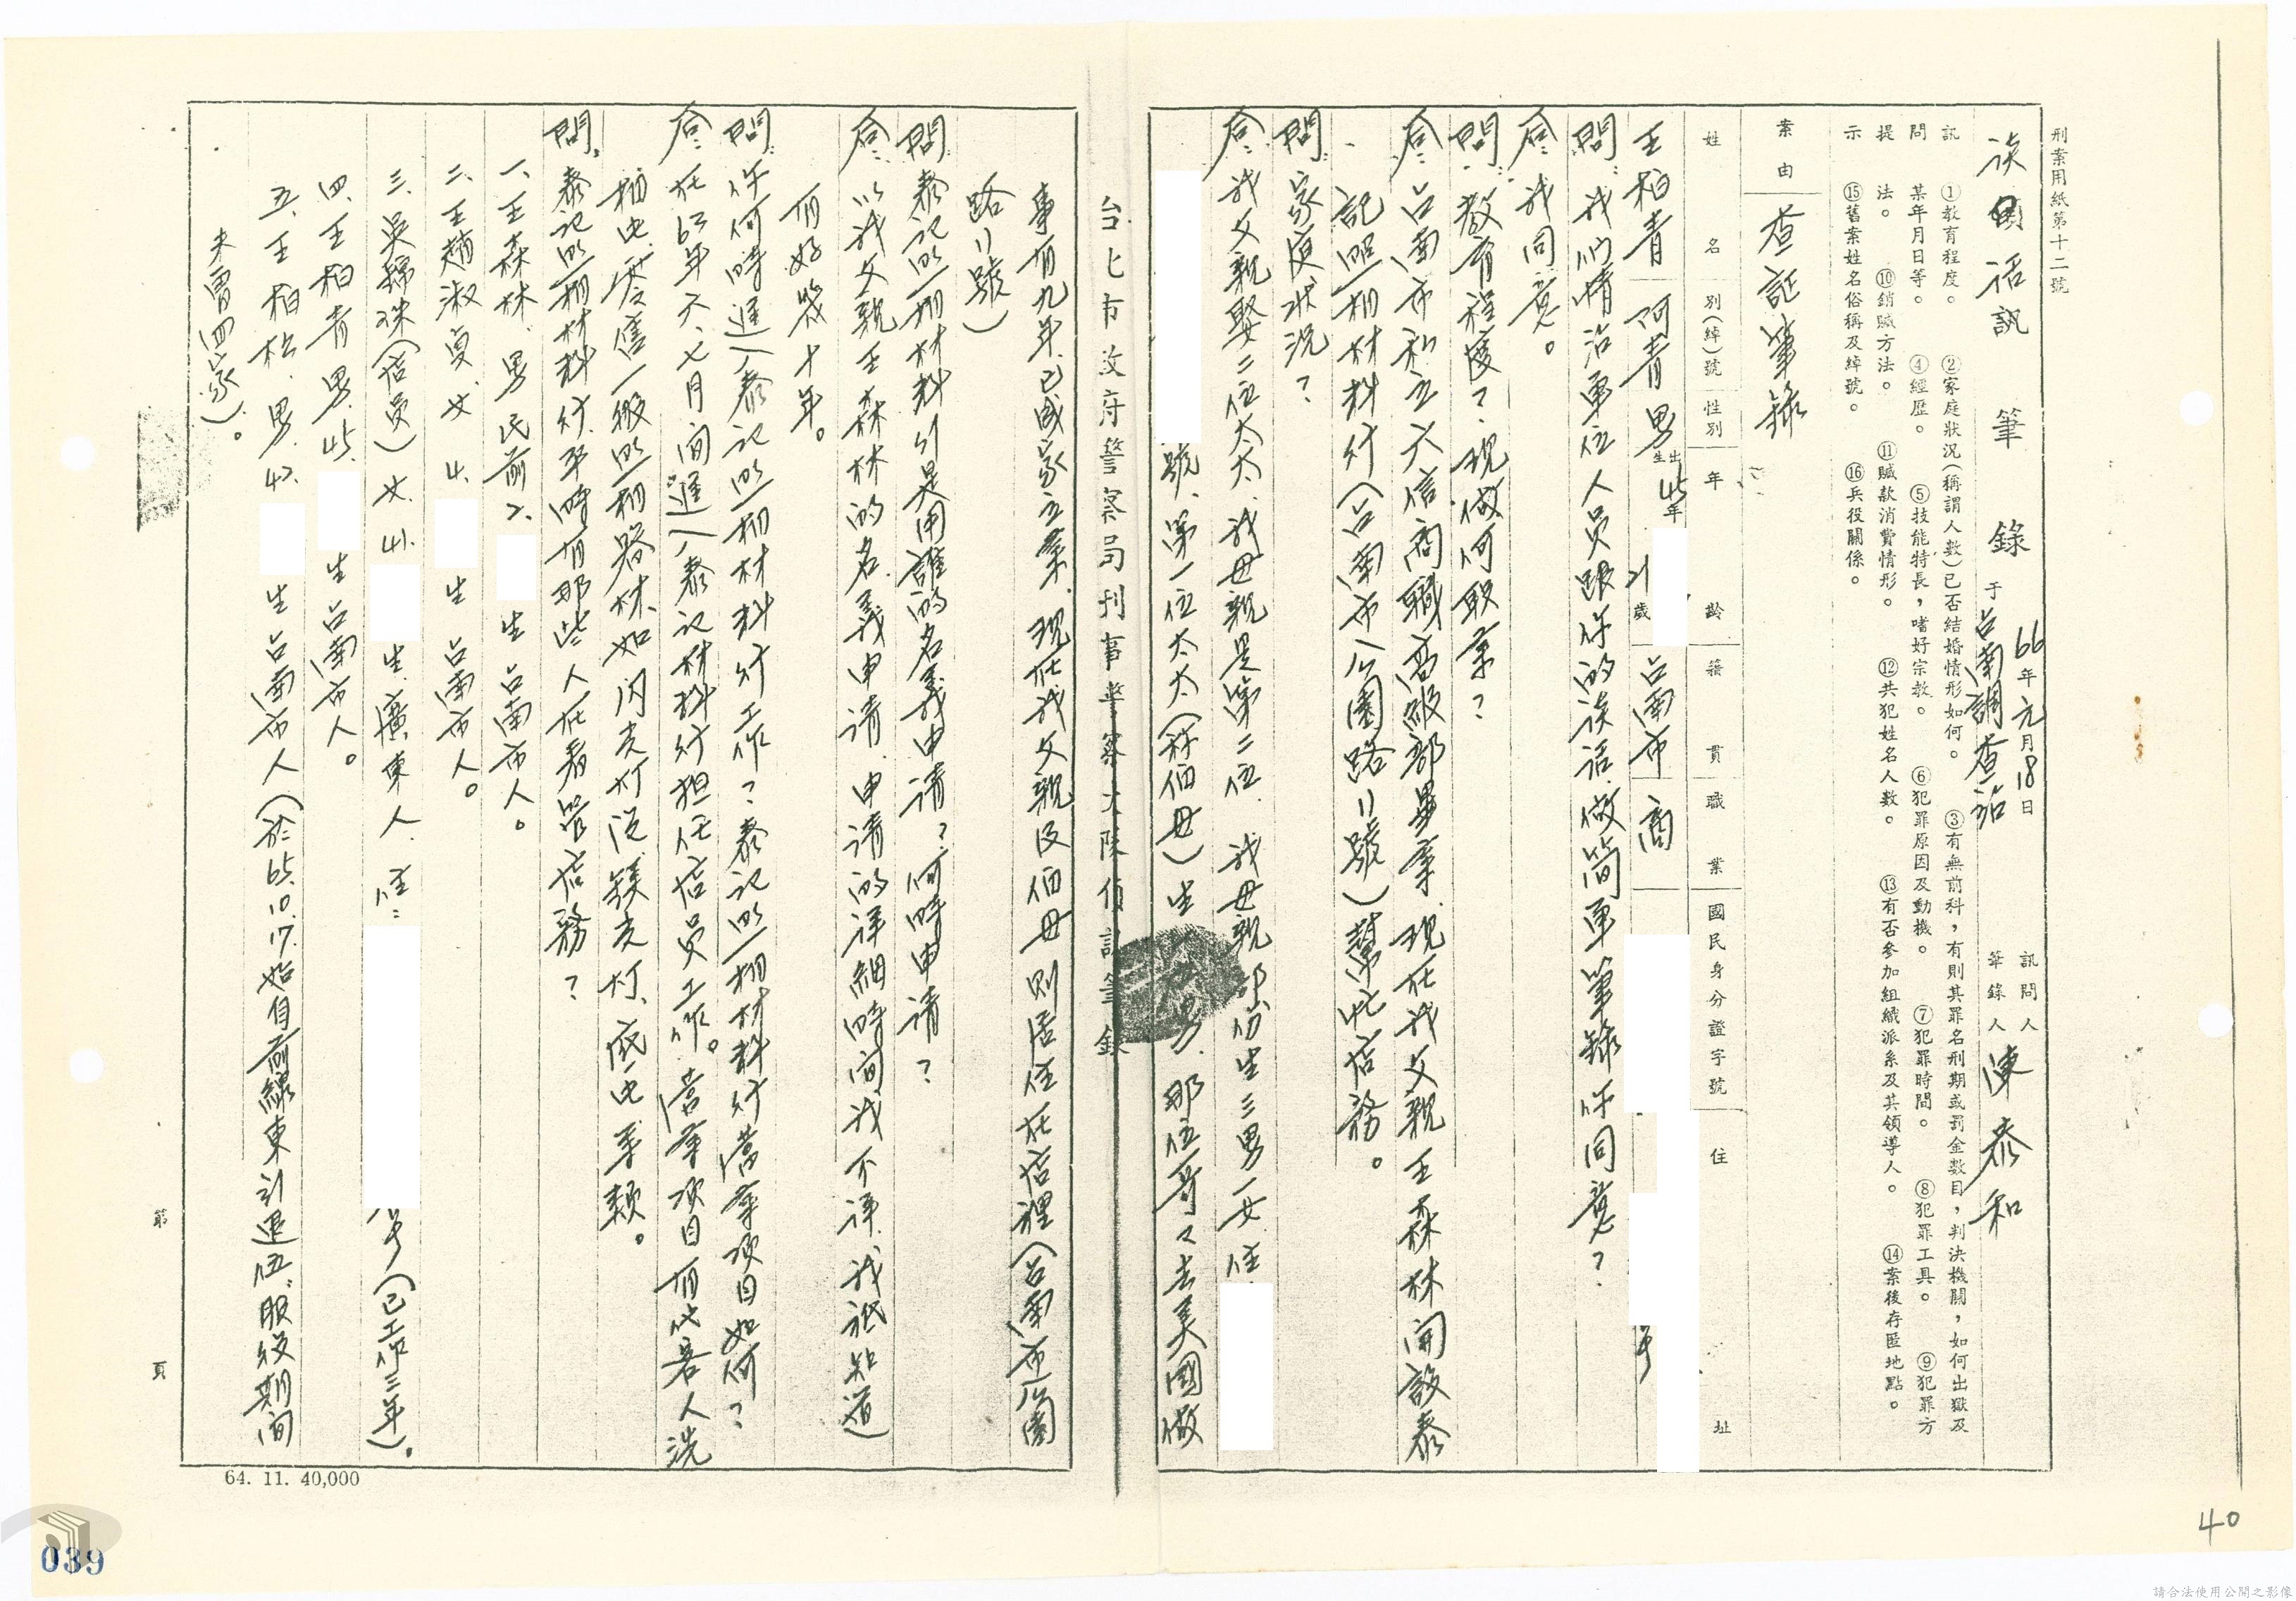 刑案用紙第十二號
談話 筆錄 于台南調查站 66年元月18日 訊問人 筆錄人 陳泰和
訊問提示
①教育程度。 ②家庭狀況(稱謂人數)已否結婚情形如何。 ③有無前科,有則其罪名刑期或罰金數目,判決機關,如何出獄及
某年月日等。 ④經歷。 ⑤技能特長,嗜好宗教。 ⑥犯罪原因及動機。 ⑦犯罪時間。 ⑧犯罪工具。 ⑨犯罪方
法。 ⑩銷贓方法。 ⑪贓款消費情形。 ⑫共犯姓名人數。 ⑬有否參加組織派系及其領導人。 ⑭案後存匿地點。
⑮舊案姓名俗稱及綽號。 ⑯兵役關係。
案由 查証筆錄
姓名 別(綽)號 性別 年齡 籍貫 職業 國民身分證字號 住址
王柏青 阿青 男 出生45年 21歲 台南市 商 号
問:我們情治單位人員跟你的談話做簡單筆錄你同意?
答:我同意。
問:教育程度?現做何職業?
答:台南市私立六信商職高級部畢業,現在我父親王森林開設泰
記照相材料行(台南市公園路11號)幫忙店務。
問:家庭狀況?
答:我父親娶二位太太,我母親是第二位,我母親部份生三男一女,住
號,第一位太太(稱伯母)生,那位哥々去美國做
台北市政府警察局刑事警察大隊偵訊筆錄
事有九年,已成家立業,現在我父親及伯母則居住在店裡(台南市公園
路11號)
問:泰記照相材料行是用誰的名義申請?何時申請?
答:以我父親王森林的名義申請,申請的詳細時間我不詳,我祇知道
有好幾十年。
問:你何時進入泰記照相材料行工作?泰記照相材料行營業項目如何?
答:在63年六、七月間進入泰記材料行担任店員工作。營業項目有代客人洗
相也零售一般照相器材,如閃光灯泡、鎂光灯、底片等類。
問:泰記照相材料行平時有那些人在看管店務?
一、王森林,男民前2.生台南市人。
二、王趙淑貞,女 4.生台南市人。
三、吳錦珠(店員)女,41.生,廣東人,住:号(已工作三年)。
四、王柏青 男,45.生台南市人。
五、王柏松,男,42.生台南市人(於65.10.17.始自前線東引退伍,服役期間
未曾回家)。
第 頁
64. 11. 40,000
039
40
請合法使用公開之影像